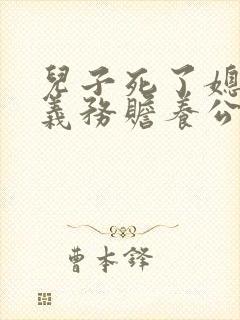 兒子死了媳
義務贍養公
曹本鋒